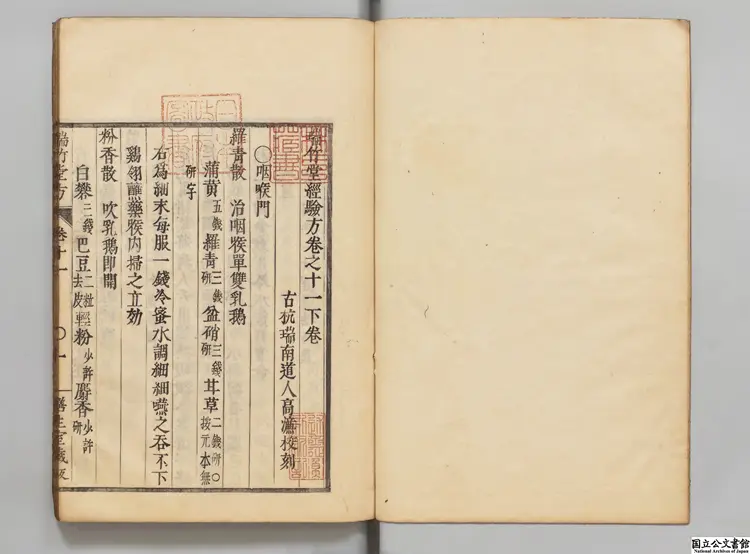 瑞竹堂經驗方卷之十一下卷
古杭瑞南道人高濂校刻
○咽喉門
羅青散 治咽喉單雙乳鵝
蒲黃五錢羅青三錢研盆硝三錢研甘草二錢研○按元本無研字
右為細末每服一錢冷蜜水調細細嚥之吞不下
鷄翎蘸藥喉內掃之立効
粉香散 吹乳鵝即開
白礬三錢巴豆二粒去皮輕粉少許麝香少許研
瑞竹堂方 卷十一 ○一
国立公文書館
National Archives of Japan